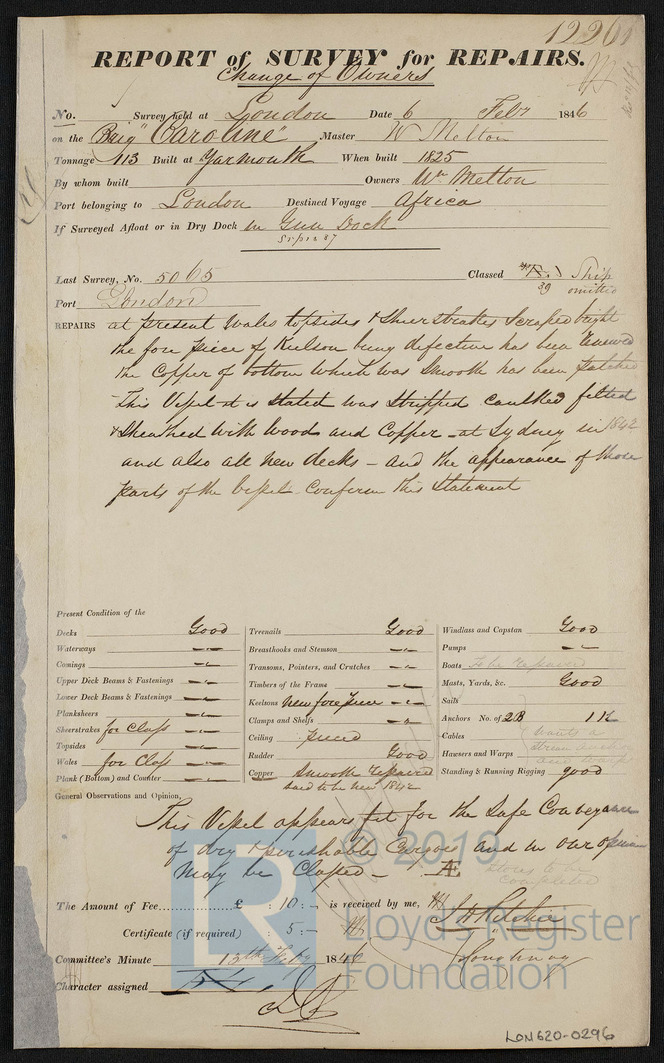 12201
REPORT of SURVEY for REPAIRS.
Change of Owners
No. Survey held at London Date 6 Feby 1846
on the Brig "Caroline" Master W Melton
Tonnage 113 Built at Yarmouth When built 1825
By whom built Owners Wm Melton
Port belonging to London Destined Voyage Africa
If Surveyed Afloat or in Dry Dock in Gun Dock
Last Survey, No. 5065 Classed Ship
39 omitted
Port London
REPAIRS at present Wales topsides & Sheerstrakes Scraped bright
the fore piece of Keelson being defective has been renewed
the Copper of bottom which was Smooth has been patched
This Vessel it is stated was stripped caulked felted
& Sheathed with wood and Copper at Sydney in 1842
and also all new decks - and the appearance of those
parts of the Vessel Confirm this statement
Present Condition of the
Decks Good
Waterways
Comings
Upper Deck Beams & Fastenings
Lower Deck Beams & Fastenings
Planksheers
Sheerstrakes for Class
Topsides
Wales for Class
Plank (Bottom) and Counter
Treenails Good
Breasthooks and Stemson
Transoms, Pointers, and Crutches
Timbers of the Frame
Keelsons New fore piece
Clamps and Shelfs
Ceiling pieced
Rudder Good
Copper Smooth repaired
said to be new 1842
Windlass and Capstan Good
Pumps
Boats To be repaired
Masts, Yards, &c. Good
Sails
Anchors No. of 2B 1K
Cables wants a
Hawsers and Warps
Standing & Running Rigging good
General Observations and Opinion,
This Vessel appears fit for the Safe Conveyance
of dry & perishable Cargoes and in our opinion
may be Classed - Æ
stores to be
completed
The Amount of Fee £ : 10 : - is received by me,
Certificate (if required) : 5 : -
Committee's Minute 13th Feby 1846
Character assigned
© 2019
Lloyd's Register
Foundation
LR
LON620-0296